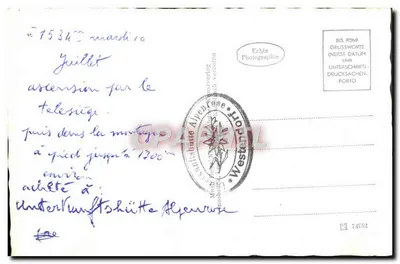 à 1534m mardi 10
Juillet
ascension par le
telesiège
puis dans la montagne
à pied jusqu'à 1700m
environ
achêté à :
Unterkunftshütte Alpenrose
Echte
Photographie
BIS FÜNF
GRUSSWORTE
(NEBST DATUM
UND
UNTERSCHRIFT)
DRUCKSACHEN-
PORTO
Alpenrose
Westendorf